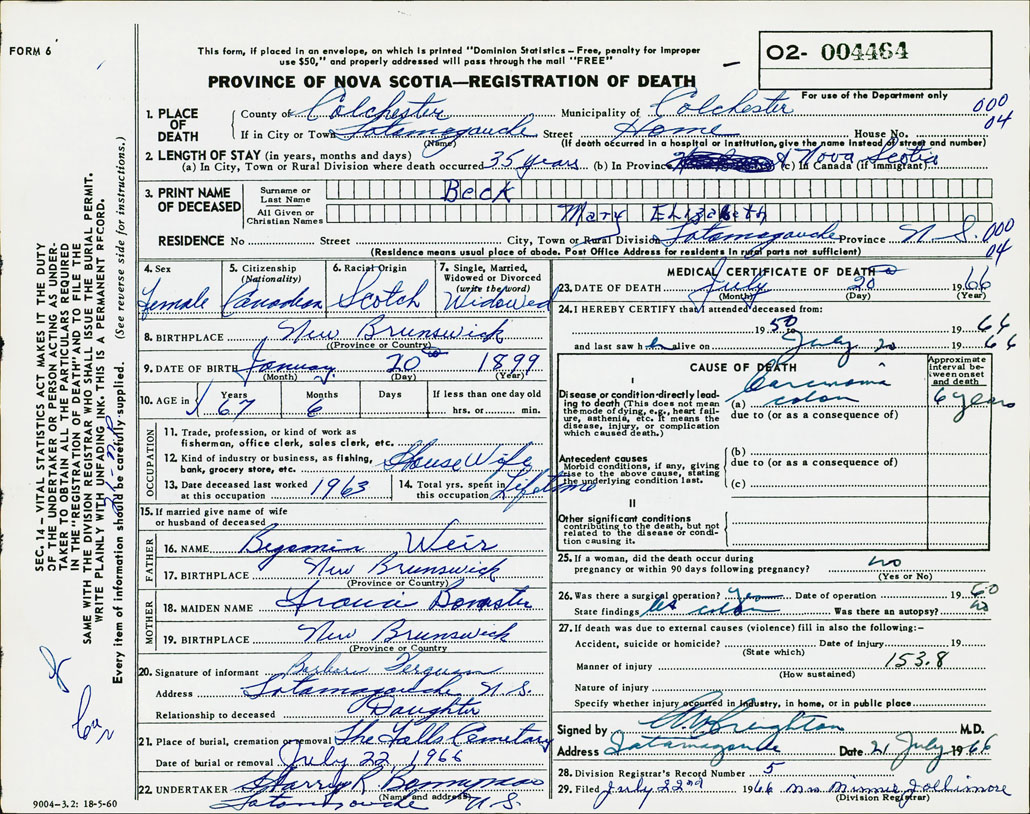 FORM 6
This form, if placed in an envelope, on which is printed "Dominion Statistics – Free, penalty for improper
use $50," and properly addressed will pass through the mail "FREE"
O2- 004464
PROVINCE OF NOVA SCOTIA—REGISTRATION OF DEATH
For use of the Department only
1. PLACE OF DEATH County of Colchester Municipality of Colchester 000
If in City or Town Tatamagouche Street Home House No. 04
(Name) (If death occurred in a hospital or institution, give the name instead of street and number)
2. LENGTH OF STAY (in years, months and days)
(a) In City, Town or Rural Division where death occurred 35 years (b) In Province Nova Scotia (c) In Canada (if immigrant)
3. PRINT NAME OF DECEASED Surname or Last Name Beck
All Given or Christian Names Mary Elizabeth
RESIDENCE No Street City, Town or Rural Division Tatamagouche Province N. S. 000
(Residence means usual place of abode. Post Office Address for residents in rural parts not sufficient) 04
4. Sex Female
5. Citizenship (Nationality) Canadian
6. Racial Origin Scotch
7. Single, Married, Widowed or Divorced (write the word) Widowed
8. BIRTHPLACE New Brunswick
(Province or Country)
9. DATE OF BIRTH January 20 1899
(Month) (Day) (Year)
10. AGE in Years 67 Months 6 Days If less than one day old hrs. or min.
OCCUPATION
11. Trade, profession, or kind of work as fisherman, office clerk, sales clerk, etc.
12. Kind of industry or business, as fishing, bank, grocery store, etc. House Wife
13. Date deceased last worked at this occupation 1963
14. Total yrs. spent in this occupation Lifetime
15. If married give name of wife or husband of deceased
FATHER
16. NAME Weir
17. BIRTHPLACE New Brunswick
(Province or Country)
MOTHER
18. MAIDEN NAME
19. BIRTHPLACE New Brunswick
(Province or Country)
20. Signature of informant Barbara Ferguson
Address Tatamagouche N. S.
Relationship to deceased Daughter
21. Place of burial, cremation or removal The Falls Cemetary
Date of burial or removal July 22, 1966
22. UNDERTAKER Harry R.
(Name and address)
Tatamagouche N. S.
MEDICAL CERTIFICATE OF DEATH
23. DATE OF DEATH July 20 1966
(Month) (Day) (Year)
24. I HEREBY CERTIFY that I attended deceased from:
1950 to 1966
and last saw h alive on July 20 1966
CAUSE OF DEATH
Approximate interval between onset and death
I
Disease or condition directly leading to death (This does not mean the mode of dying, e.g., heart failure, asthenia, etc. It means the disease, injury, or complication which caused death.)
(a) Carcinoma colon 6 years
due to (or as a consequence of)
Antecedent causes
Morbid conditions, if any, giving rise to the above cause, stating the underlying condition last.
(b)
due to (or as a consequence of)
(c)
II
Other significant conditions
contributing to the death, but not related to the disease or condition causing it.
25. If a woman, did the death occur during pregnancy or within 90 days following pregnancy? no
(Yes or No)
26. Was there a surgical operation? Yes Date of operation 1960
State findings colon Was there an autopsy? no
27. If death was due to external causes (violence) fill in also the following:–
Accident, suicide or homicide? Date of injury 19
(State which)
Manner of injury 153.8
(How sustained)
Nature of injury
Specify whether injury occurred in industry, in home, or in public place
Signed by Creighton M.D.
Address Tatamagouche Date 21 July 1966
28. Division Registrar's Record Number 5
29. Filed July 22nd 1966 Mrs Minnie Jollimore
(Division Registrar)
SEC. 14 – VITAL STATISTICS ACT MAKES IT THE DUTY
OF THE UNDERTAKER OR PERSON ACTING AS UNDER-
TAKER TO OBTAIN ALL THE PARTICULARS REQUIRED
IN THE "REGISTRATION OF DEATH" AND TO FILE THE
SAME WITH THE DIVISION REGISTRAR WHO SHALL ISSUE THE BURIAL PERMIT.
WRITE PLAINLY WITH UNFADING INK. THIS IS A PERMANENT RECORD.
Every item of information should be carefully supplied. (See reverse side for instructions.)
9004-3.2: 18-5-60